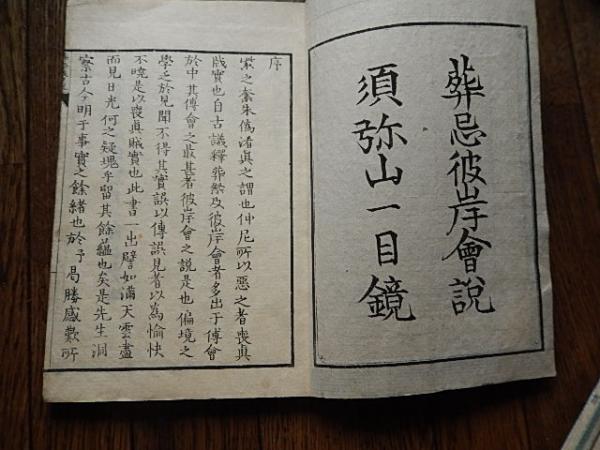 葬忌彼岸會説
須弥山一目鏡
序
紫之奪朱偽渚真之謂也仲尼所以惡之者喪真
戝實也自古議釋葬祭及彼岸會者多出于傅會
於中其傅會之最甚者彼岸會之説是也偏境之
學乏於見聞不得其實誤以傳誤見者以為愉快
不曉是以喪真賊實也此書一出譬如滿天雲盡
而見日光何之疑塊乎留其餘蘊也矣是先生洞
察古今明于事實之餘緒也於予曷勝感歎所